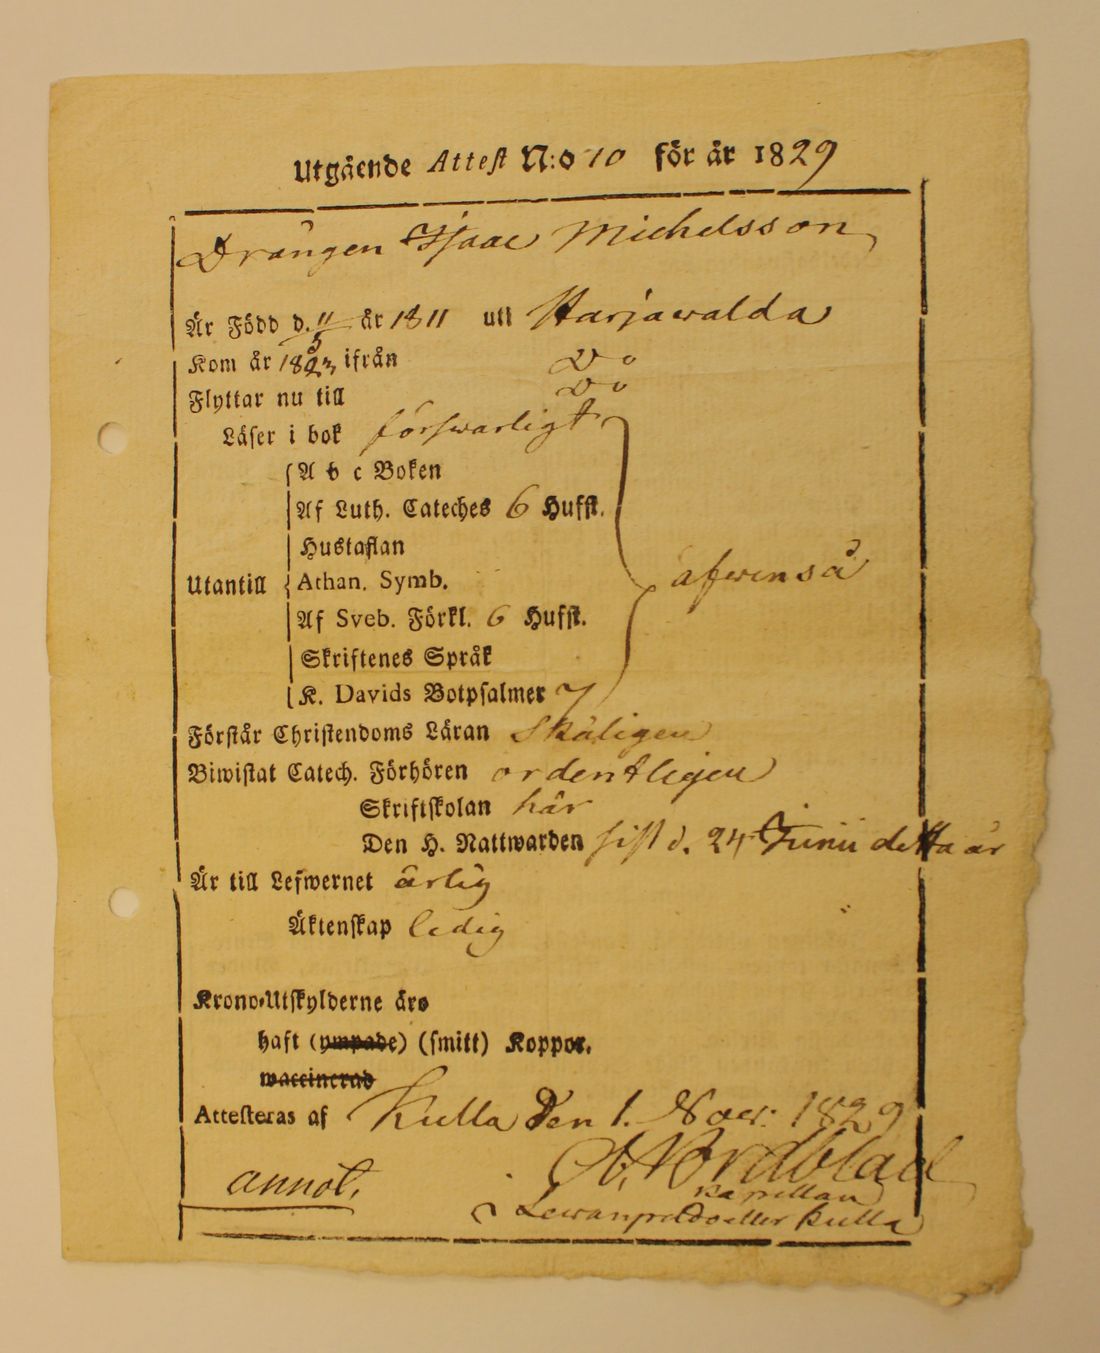 Utgående Attest N:o 10 för år 1829
Drängen Isaac Michelsson
Är Född d. 11/5 år 1811 uti Harjawalda
Kom år 1823 ifrån Do
Flyttar nu till Do
Läser i bok förswarligt
A b c Boken
Af Luth. Cateches 6 Hufst.
Hustaflan
Utantill Athan. Symb. äfwenså
Af Sveb. Förkl. 6 Hufst.
Skriftenes Språk
K. Davids Botpsalmer 7
Förstår Christendoms Läran Skäligen
Biwistat Catech. Förhören ordentligen
Skriftskolan här
Den H. Nattwarden sist d. 24 Junii detta år
Är till Lefwernet ärlig
Äktenskap ledig
Krono-Utskylderne äro
haft (ympade) (smitt) Koppor.
waccinerad
Attesteras af Kulla Den 1. Nov: 1829
Nordblad
annot. Kapellan
i eller Kulla